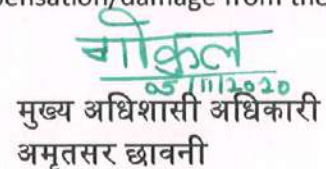 pensation/damage from the
गोकुल
05/11/2020
मुख्य अधिशासी अधिकारी
अमृतसर छावनी